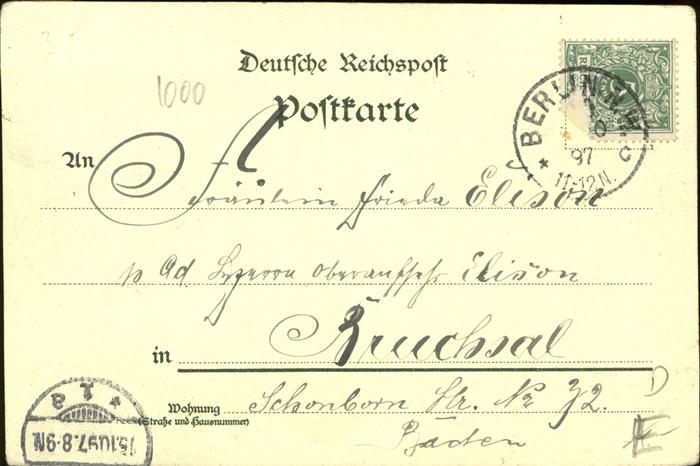 1000
Deutsche Reichspost
Postkarte
BERLIN N.W.
97
* c
11-12 N.
An Fräulein Frieda Elison
p Ad. Herrn Oberaufseh. Elison
in Bruchsal
Wohnung Schonborn Str. No 32.
(Straße und Hausnummer)
Baden
15.10.97.8-9N.